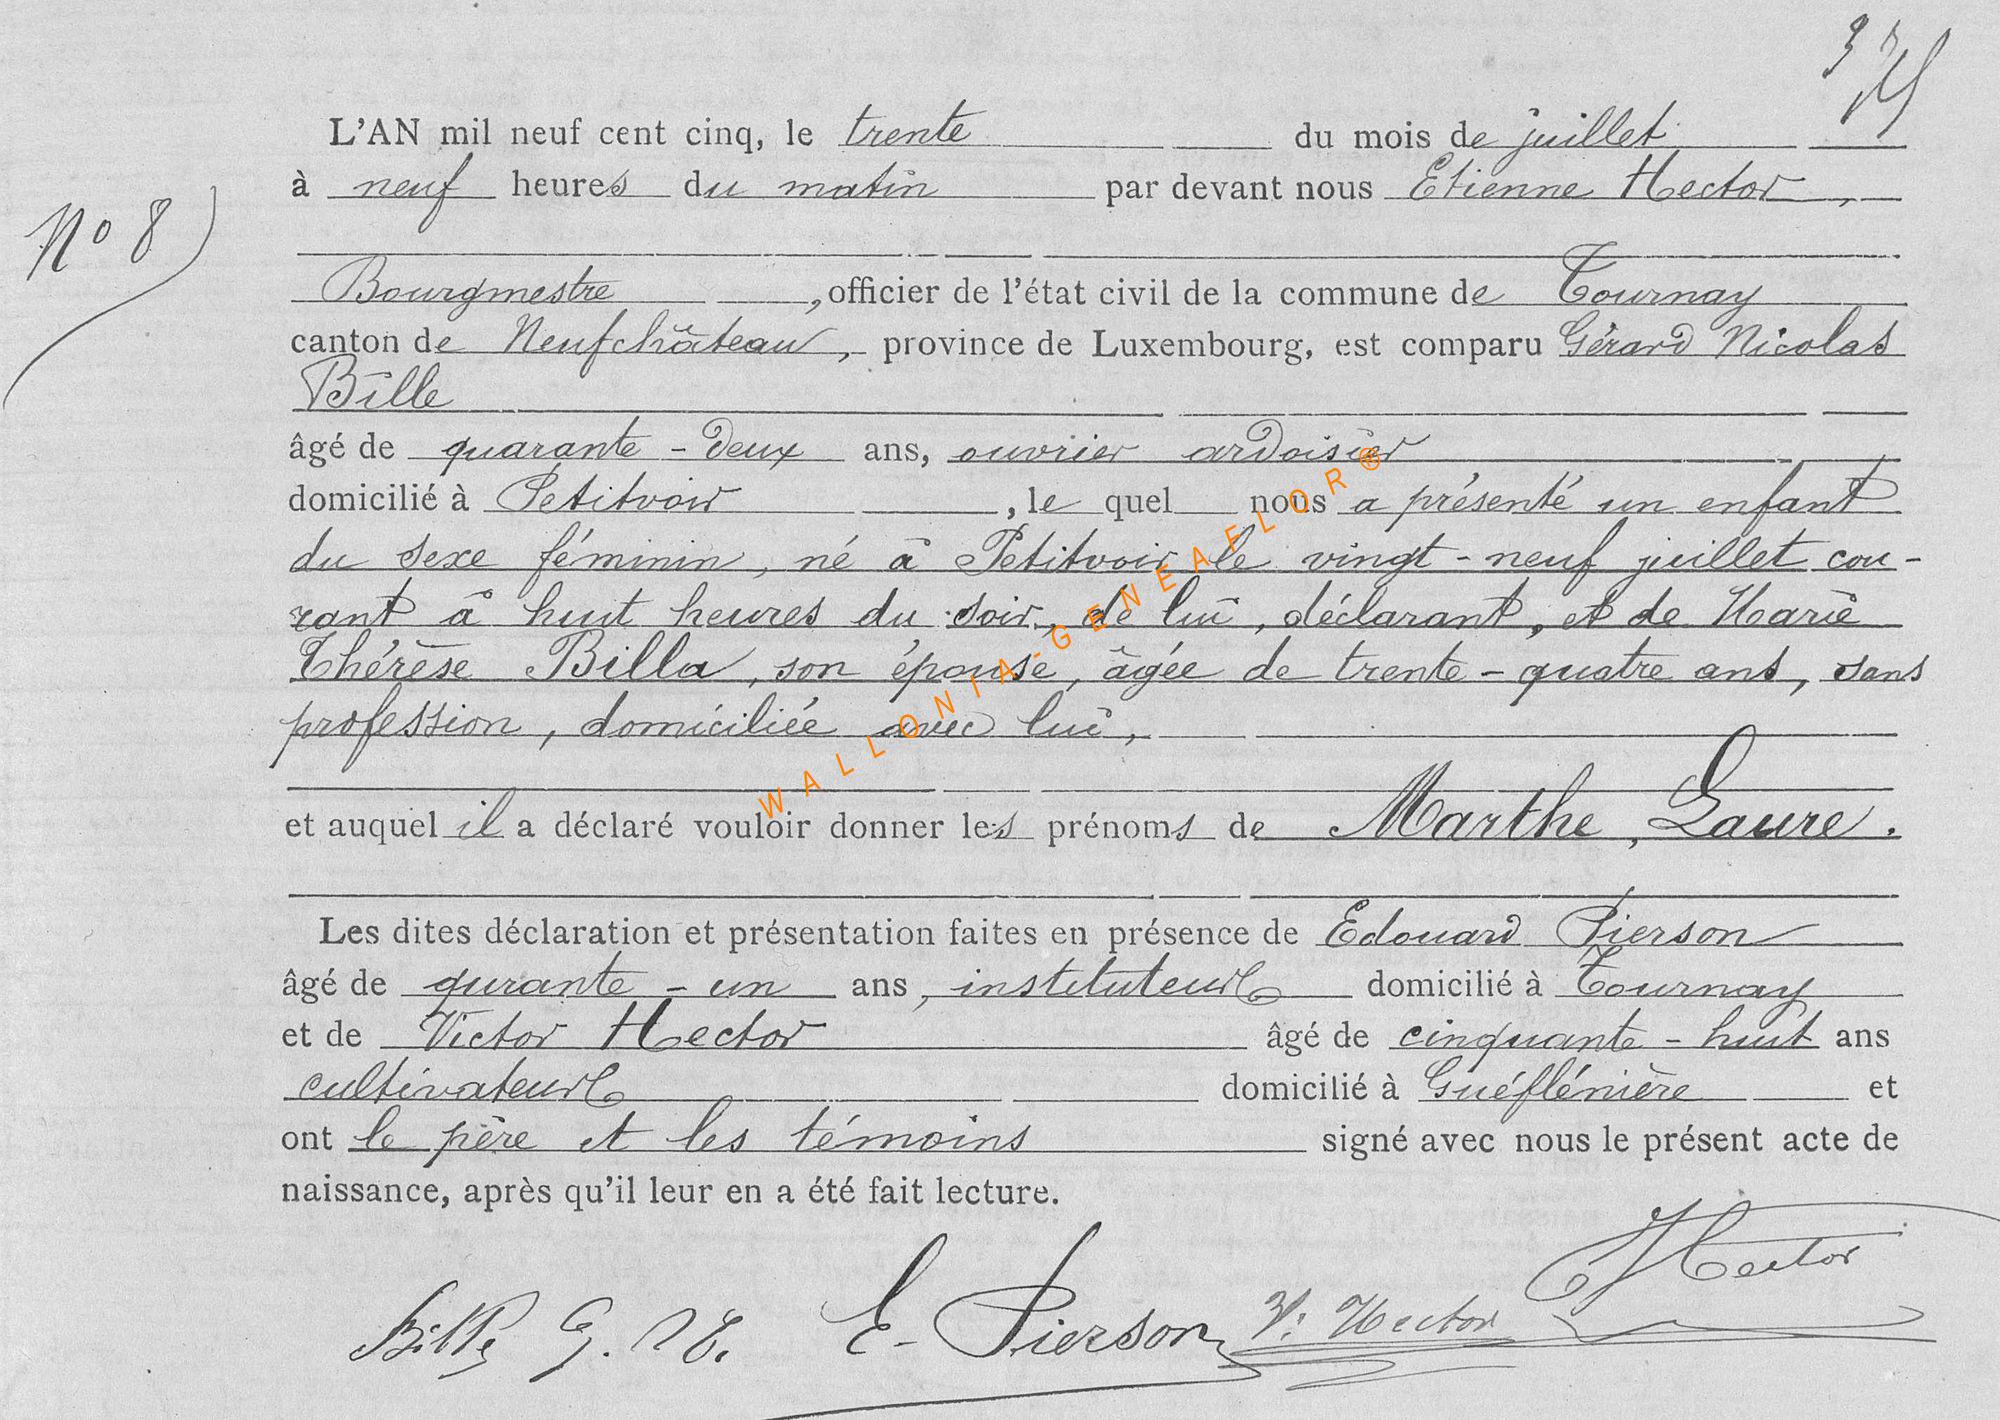 L'AN mil neuf cent cinq, le trente du mois de juillet
à neuf heures du matin par devant nous Etienne Hector,
N° 8)
Bourgmestre, officier de l'état civil de la commune de Tournay
canton de Neufchâteau, province de Luxembourg, est comparu Gérard Nicolas
Bille
âgé de quarante-deux ans, ouvrier ardoisier
domicilié à Petitvoir, le quel nous a présenté un enfant
du sexe féminin, né à Petitvoir le vingt-neuf juillet cou-
rant à huit heures du soir, de lui, déclarant, et de Marie
Thérèse Billa, son épouse, âgée de trente-quatre ans, sans
profession, domiciliée avec lui,
WALLONIA-GENEAFLOR®
et auquel il a déclaré vouloir donner les prénoms de Marthe, Laure.
Les dites déclaration et présentation faites en présence de Edouard Pierson
âgé de qurante-un ans, instituteur domicilié à Tournay
et de Victor Hector âgé de cinquante-huit ans
cultivateur domicilié à Guéflénière et
ont le père et les témoins signé avec nous le présent acte de
naissance, après qu'il leur en a été fait lecture.
Bille G. N. E. Pierson V. Hector Hector